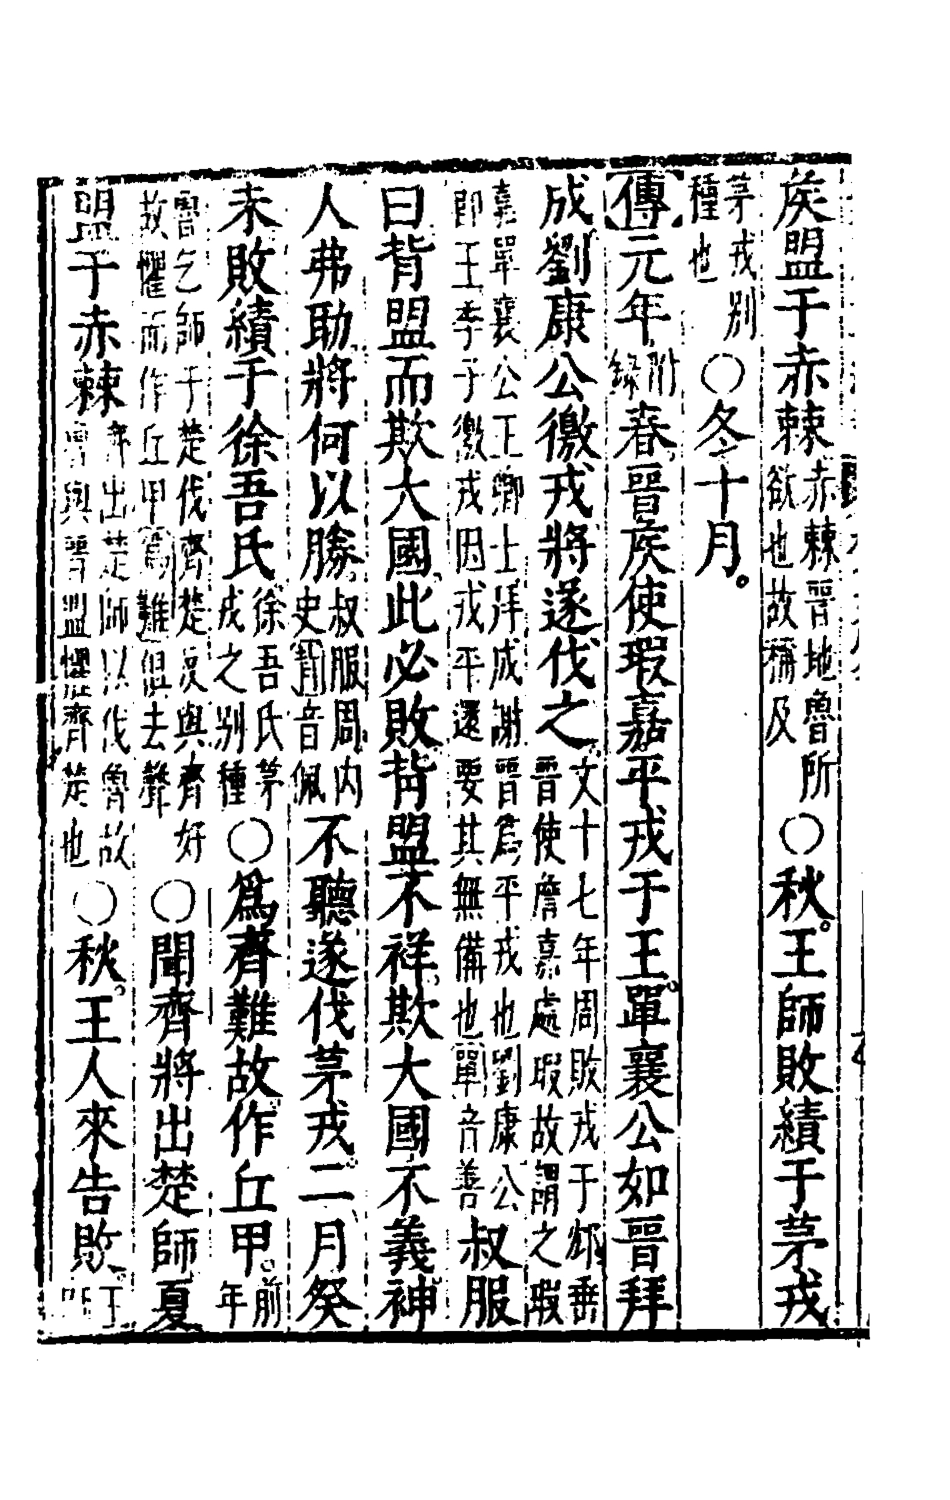 矦盟于赤棘赤棘晉地魯所欲也故稱及〇秋王師敗績于茅戎
茅戎别種也〇冬十月。
傳元年附錄春晉矦使瑕嘉平戎于王單襄公如晉拜
成劉康公徼戎將遂伐之文十七年周敗戎于邥垂晉使詹嘉處瑕故謂之瑕
嘉單襄公王卿士拜成謝晉爲平戎也劉康公即王季子徼戎因戎平還要其無備也單音善叔服
曰背盟而欺大國此必敗背盟不祥欺大國不義神
人弗助將何以勝叔服周内史背音佩不聽遂伐茅戎二月癸
未敗績于徐吾氏徐吾氏茅戎之别種〇爲齊難故作丘甲前年
魯乞師于楚伐齊楚與齊好故懼而作丘甲爲難俱去聲〇聞齊將出楚師夏
盟于赤棘齊出楚師以伐魯故魯與晉盟懼齊楚也〇秋王人來告敗